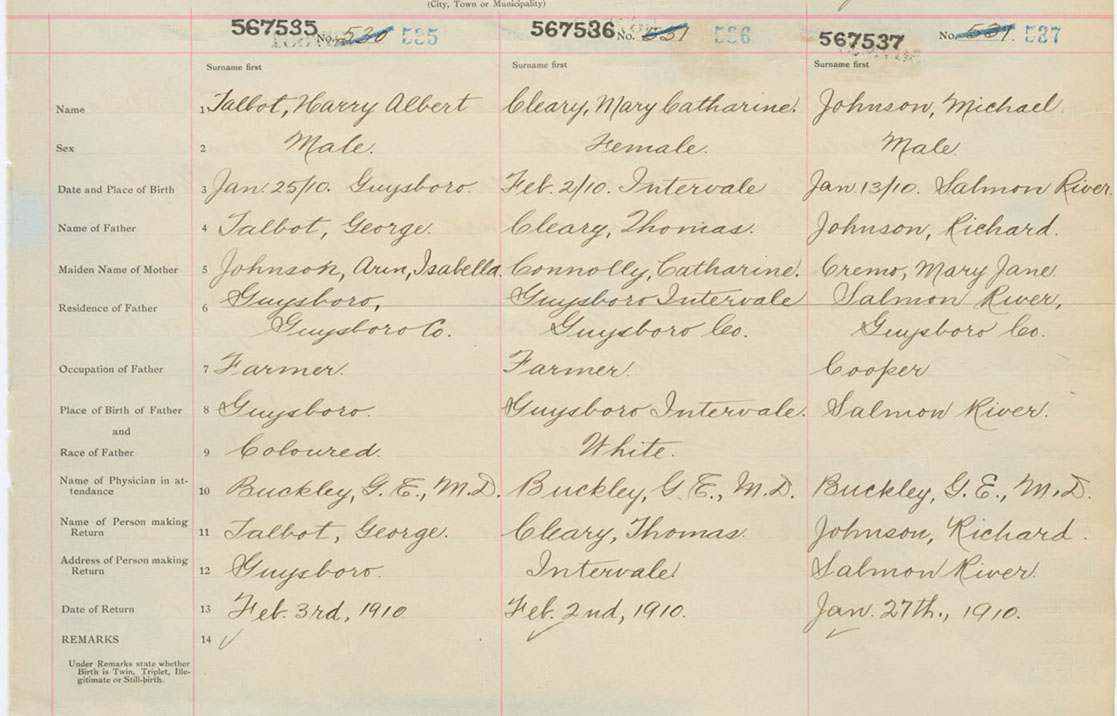 (City, Town or Municipality)
567535 No. 530 535 567536 No. 531 536 567537 No. 531 537
Surname first Surname first Surname first
Name 1 Talbot, Harry Albert Cleary, Mary Catharine. Johnson, Michael.
Sex 2 Male. Female. Male.
Date and Place of Birth 3 Jan. 25/10. Guysboro. Feb. 2/10. Intervale Jan. 13/10. Salmon River.
Name of Father 4 Talbot, George. Cleary, Thomas. Johnson, Richard.
Maiden Name of Mother 5 Johnson, Ann, Isabella. Connolly, Catharine. Cremo, Mary Jane.
Residence of Father 6 Guysboro, Guysboro Intervale Salmon River,
Guysboro Co. Guysboro Co. Guysboro Co.
Occupation of Father 7 Farmer. Farmer. Cooper
Place of Birth of Father 8 Guysboro. Guysboro Intervale. Salmon River.
and
Race of Father 9 Coloured. White.
Name of Physician in at-
tendance 10 Buckley, G. E., M.D. Buckley, G. E., M.D. Buckley, G. E., M.D.
Name of Person making
Return 11 Talbot, George. Cleary, Thomas. Johnson, Richard.
Address of Person making
Return 12 Guysboro. Intervale. Salmon River.
Date of Return 13 Feb. 3rd, 1910. Feb. 2nd, 1910. Jan. 27th., 1910.
REMARKS 14
Under Remarks state whether
Birth is Twin. Triplet, Ille-
gitimate or Still-birth.